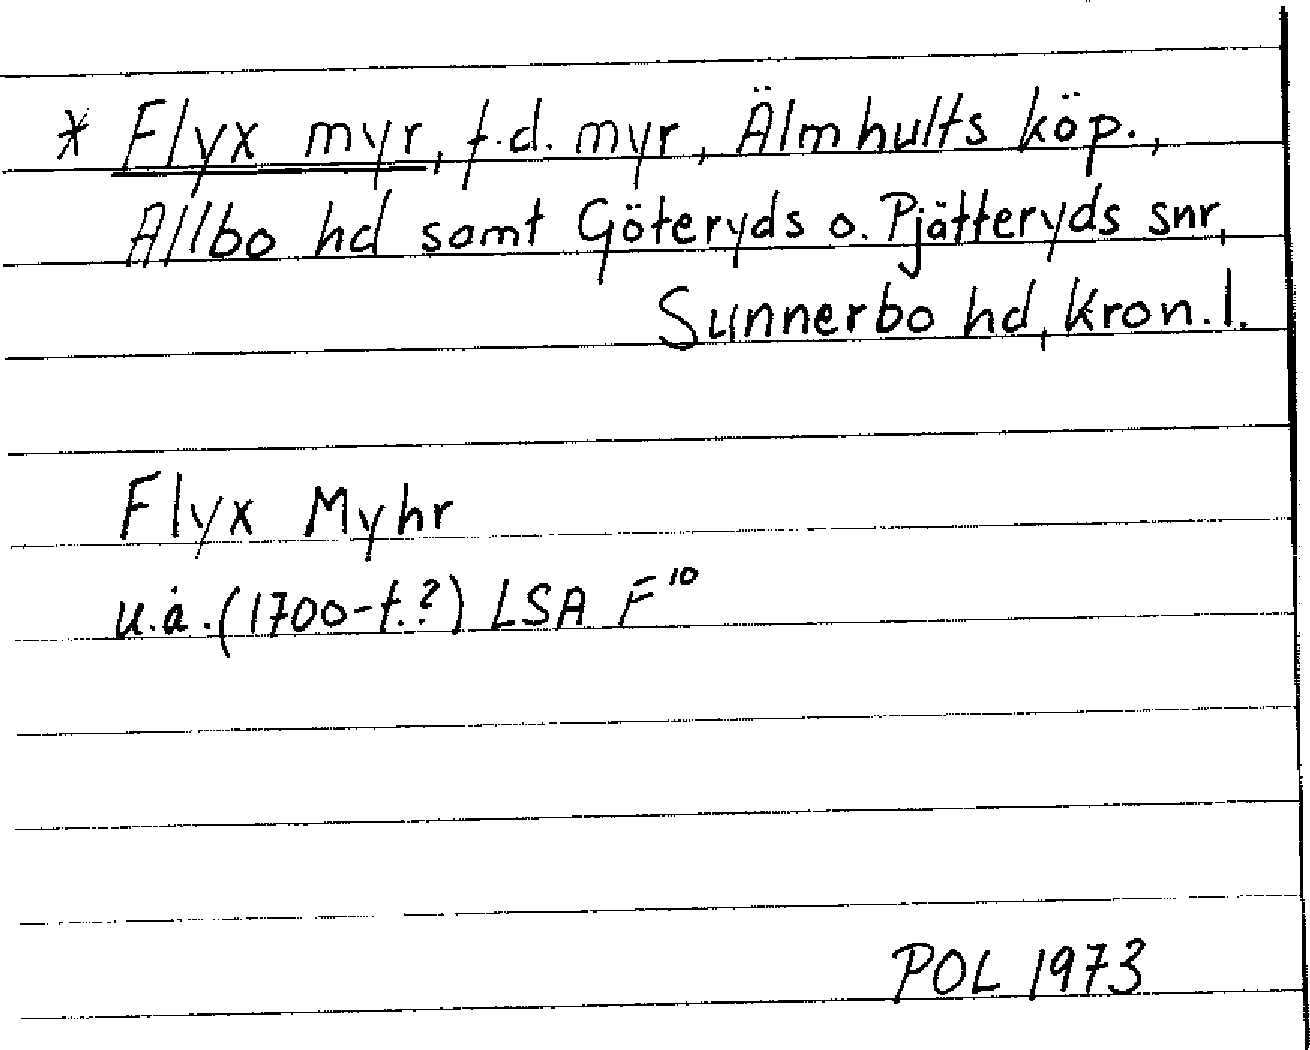 * Flyx myr, f.d. myr, Älmhults köp.,
Allbo hd samt Göteryds o. Pjätteryds snr,
Sunnerbo hd, Kron. l.
Flyx Myhr
u.å. (1700-t.?) LSA F¹⁰
POL 1973